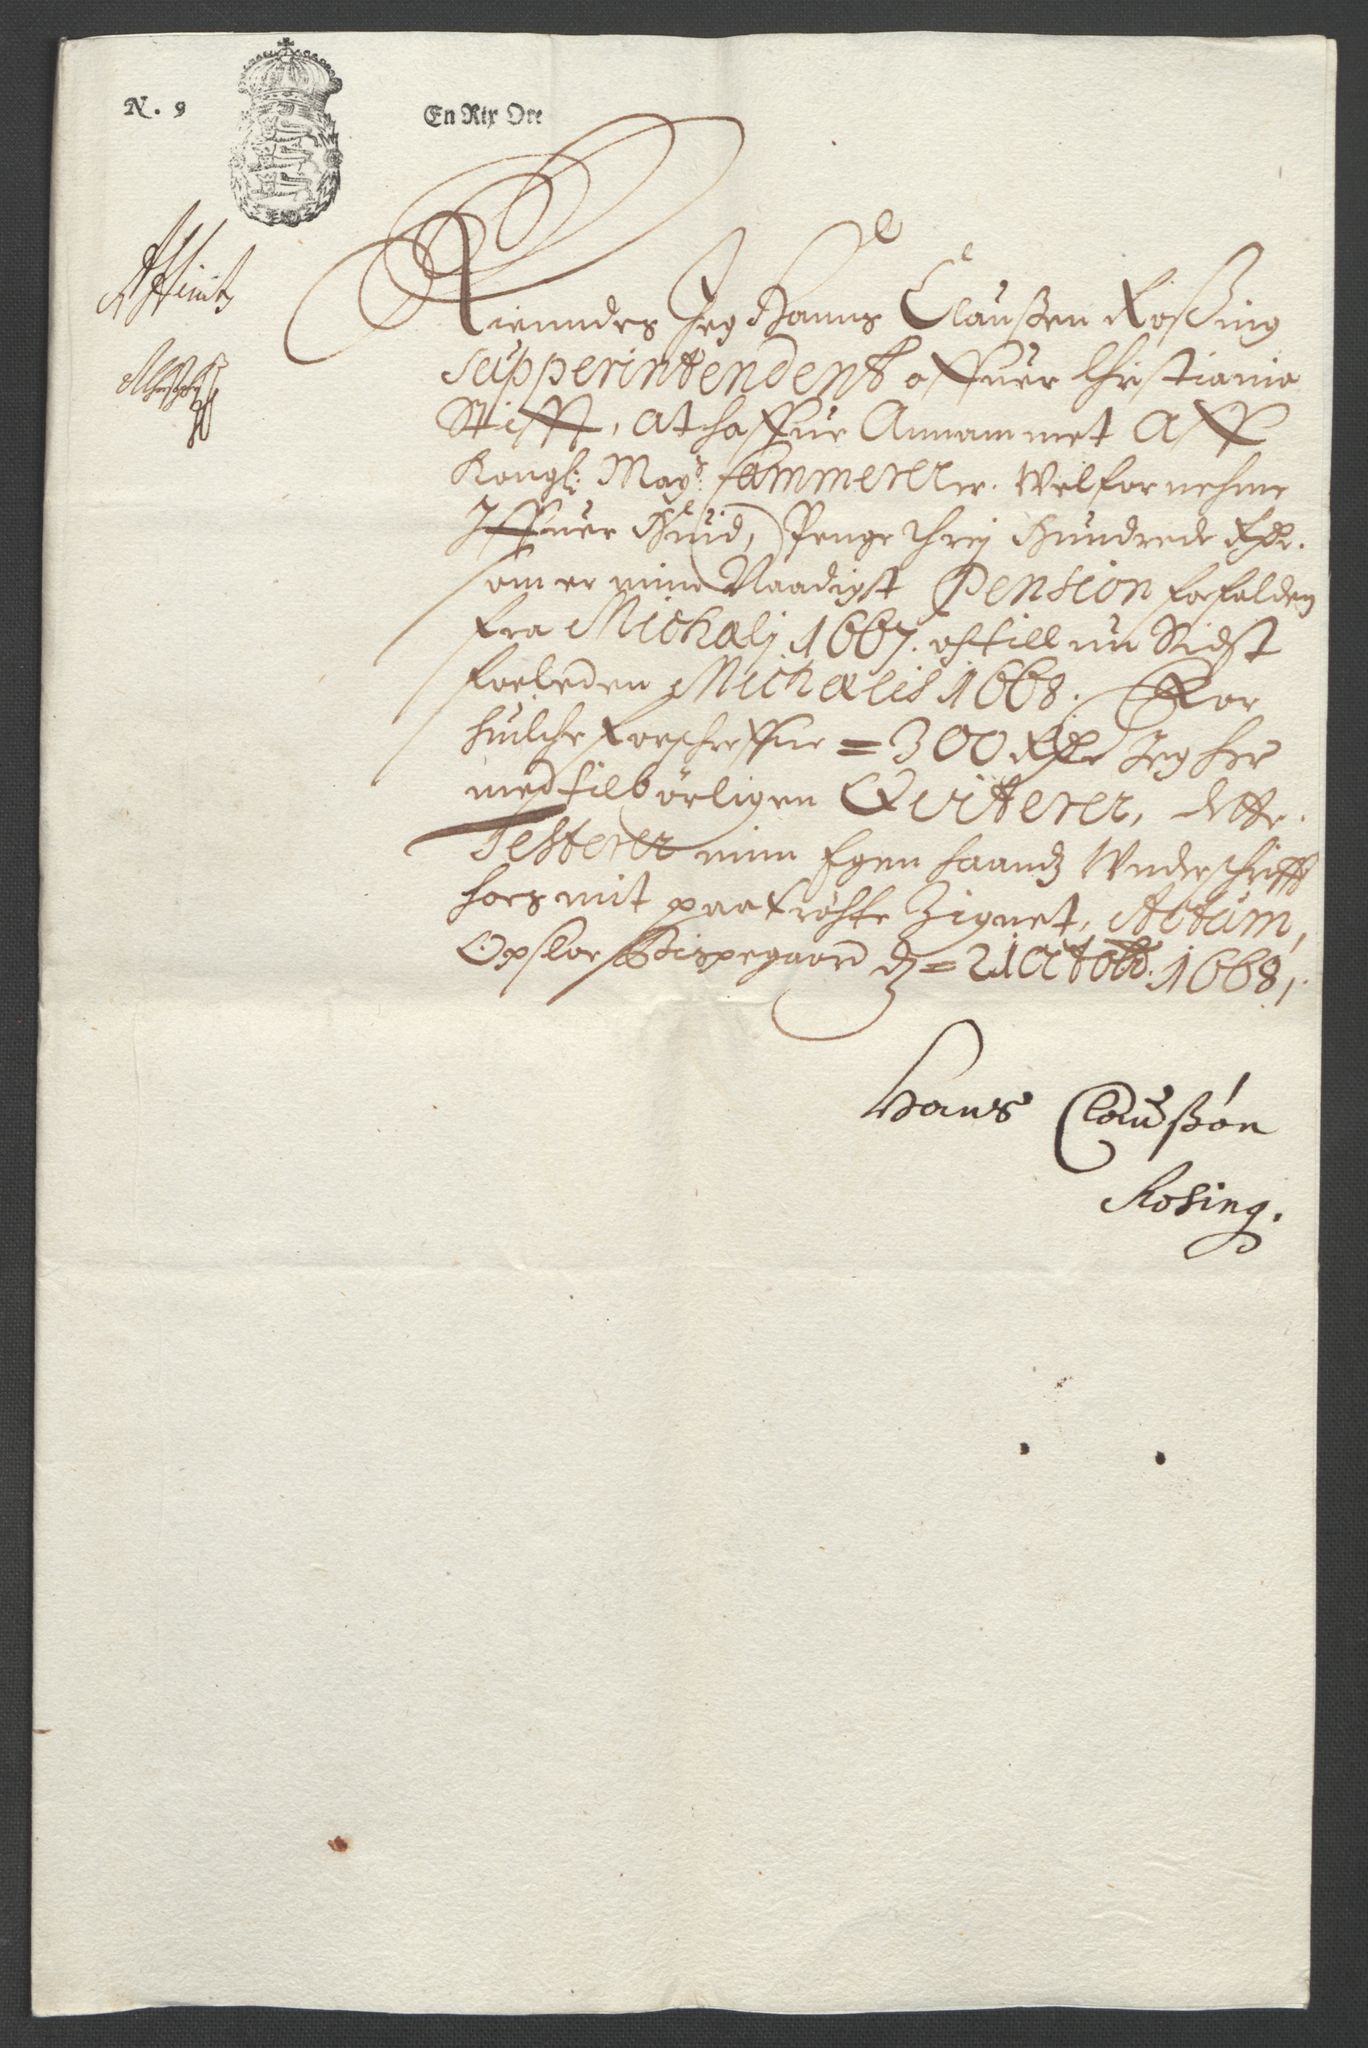 N. 9
En Rix Ort
Kienndes Jeg Hanns Claußen Roßing
Supperintendent offuer Christiania
Stifft, at haffue Annammet Aff
Kongl: May: Cammererer. Welfornehme
Iffuer Huid, Penge Threj Hundrede Rdr.
som er mine Naadigst Pension forfalden
fra Michalj 1667. og till nu Sidst
forleden Michælis 1668. For
huilche forschreffne = 300 Rdr Jeg her
med tilbörligen Qviterer, dette
Testerer min Egen haandz Underschrifft
hos mit paatröchte Zignet, Actum,
Opsloe Bispegaard dz = 21 Octobr. 1668,
Hans Claußön
Rosing.